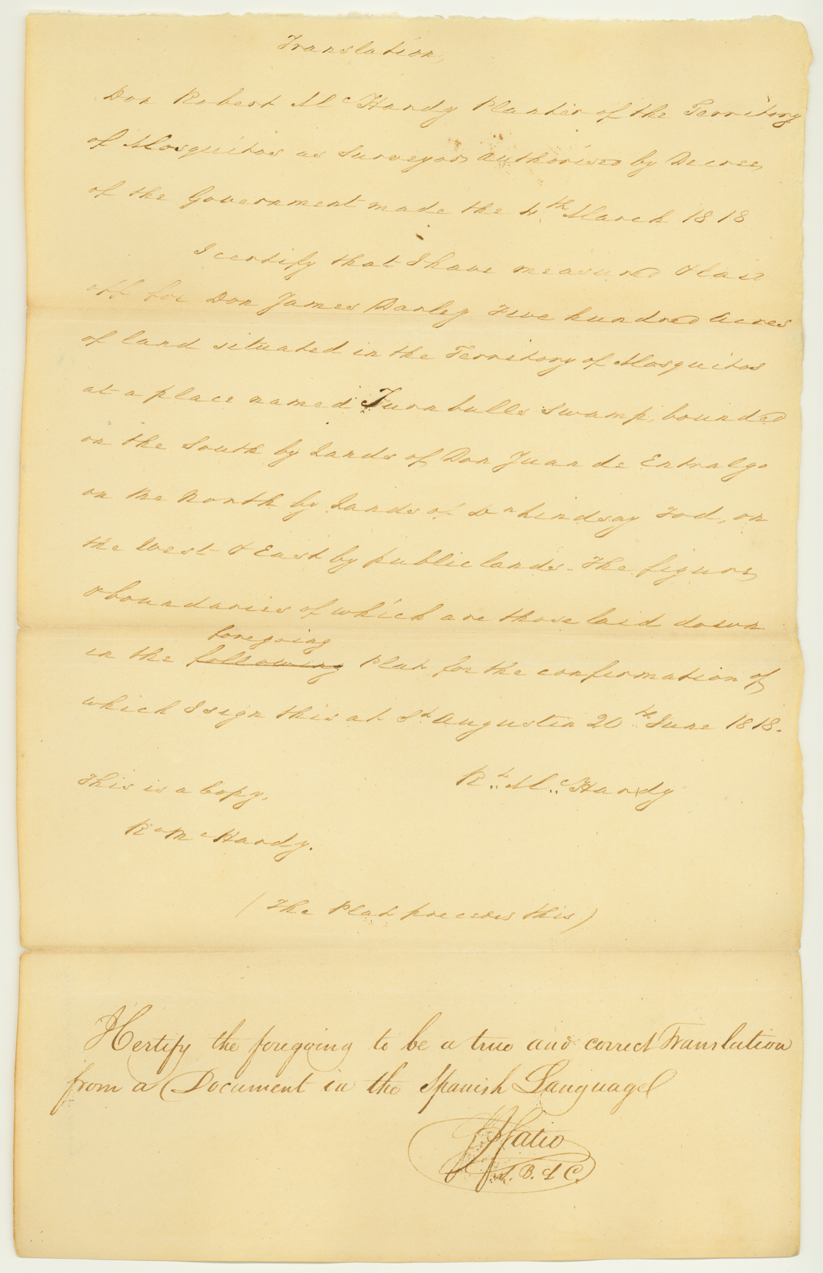 Translation,
Don Robert McHardy Planter of the Territory
of Mosquitos as Surveyor authorised by Decree
of the Government made the 4th March 1818
I certify that I have measured & laid
off for Don James Darley Five hundred acres
of land situated in the Territory of Mosquitos
at a place named Turnbulls Swamp, bounded
on the South by Lands of Don Juan de Entralgo
on the North by Lands of Dn Lindsay Tod, on
the West & East by public lands. The figure
& boundaries of which are those laid down
foregoing
in the following Plat for the confirmation of
which I sign this at St Augustin 20th June 1818.
Rt. McHardy
This is a Copy.
Rt McHardy.
(The Plat precedes this)
I Certify the foregoing to be a true and correct Translation
from a Document in the Spanish Language
Fatio